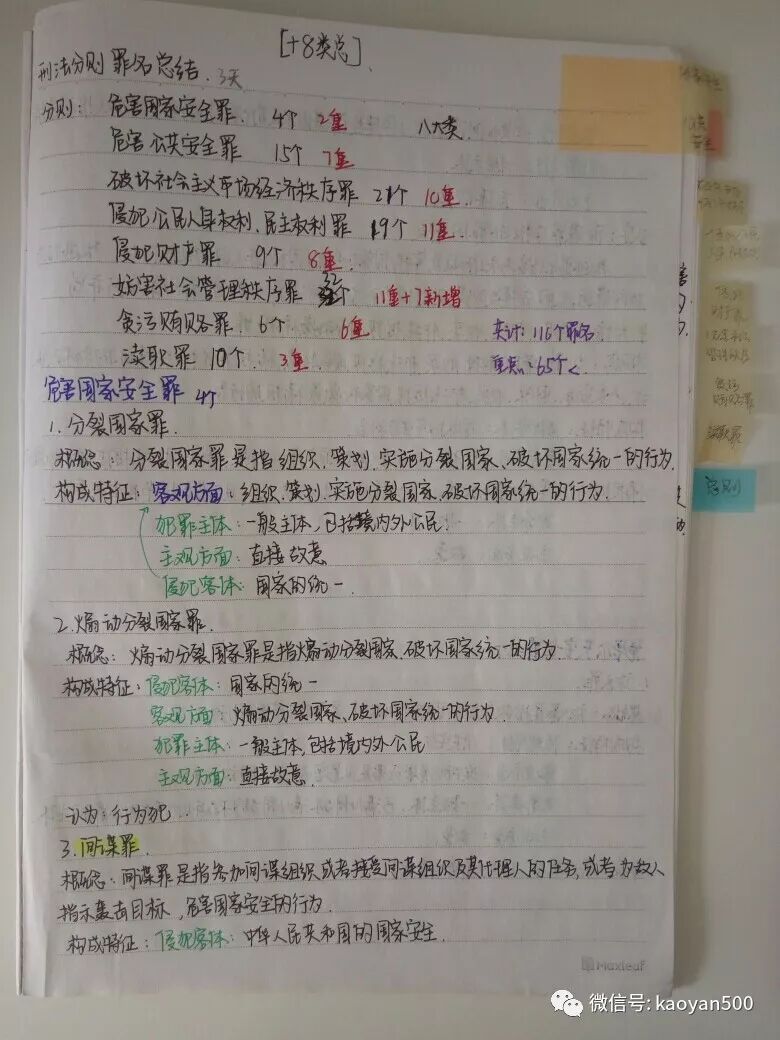 [+8类总]
刑法分则 罪名总结. 3天
分则: 危害国家安全罪. 4个 2重 八大类.
危害公共安全罪 15个 7重
破坏社会主义市场经济秩序罪 21个 10重
侵犯公民人身权利、民主权利罪 19个 11重
侵犯财产罪 9个 8重
妨害社会管理秩序罪 32个 11重+7新增
贪污贿赂罪. 6个 6重 共计: 116个罪名
渎职罪 10个. 3重 重点: 65个
危害国家安全罪 4个
1. 分裂国家罪.
概念: 分裂国家罪是指组织、策划、实施分裂国家、破坏国家统一的行为.
构成特征: 客观方面: 组织、策划、实施分裂国家、破坏国家统一的行为.
犯罪主体: 一般主体, 包括境内外公民.
主观方面: 直接故意
侵犯客体: 国家的统一.
2. 煽动分裂国家罪.
概念: 煽动分裂国家罪是指煽动分裂国家、破坏国家统一的行为.
构成特征: 侵犯客体: 国家的统一
客观方面: 煽动分裂国家、破坏国家统一的行为
犯罪主体: 一般主体, 包括境内外公民
主观方面: 直接故意.
认为: 行为犯.
3. 间谍罪.
概念: 间谍罪是指参加间谍组织或者接受间谍组织及其代理人的任务, 或者为敌人
指示轰击目标, 危害国家安全的行为.
构成特征: 侵犯客体: 中华人民共和国的国家安全.
Maxleaf
总则
渎职罪
微信号: kaoyan500